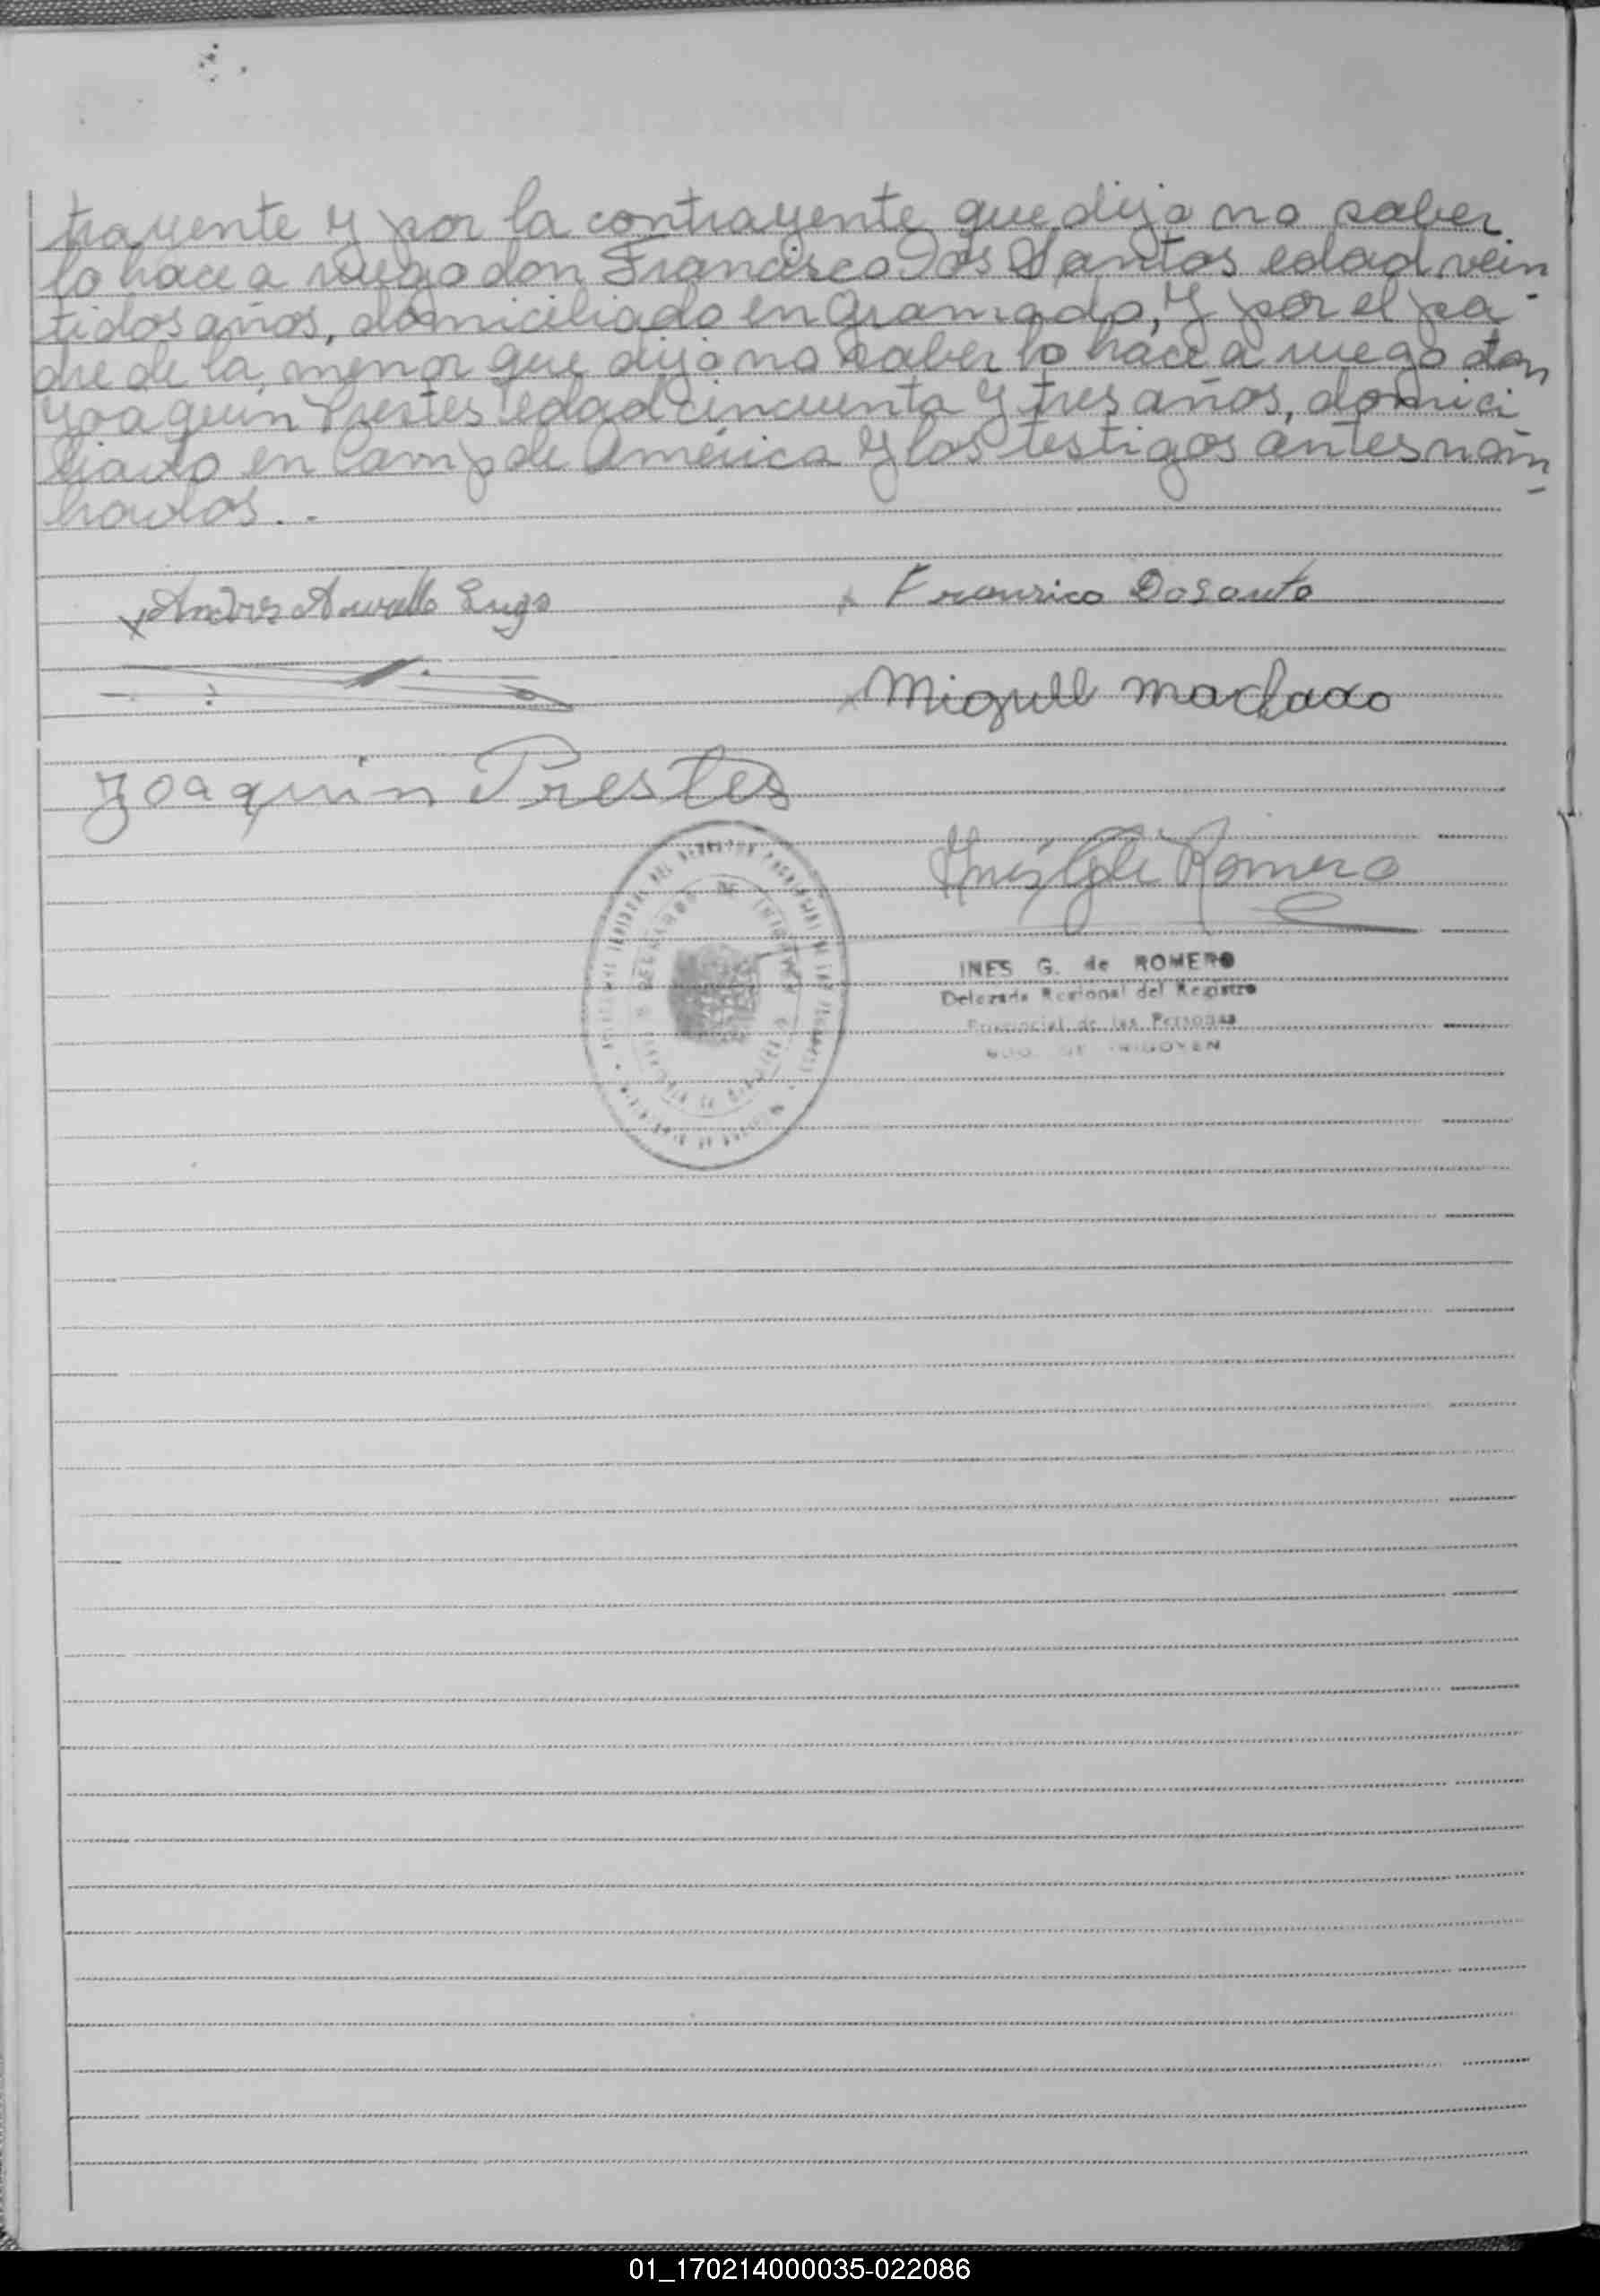 trayente y por la contrayente que dijo no saber
lo hace a ruego don Francisco Dos Santos edad vein
tidos años, domiciliado en Gramado, y por el pa-
dre de la menor que dijo no saber lo hace a ruego don
Joaquin Prestes edad cincuenta y tres años, domici
liado en Camp de América y los testigos antes nom-
brados..-
Lugo
Francisco Dosanto
Miguel Machado
Joaquin Prestes
Romero
INES G. de ROMERO
Delegada Regional del Registro
Provincial de las Personas
IRIGOYEN
01_170214000035-022086